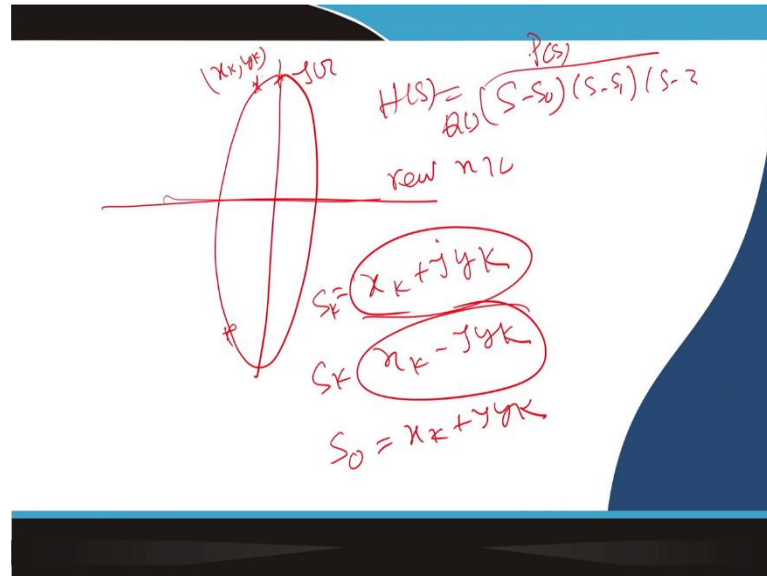 (xk, yk)
jΩ
P(s)
H(s) =
(s-s0) (s-s1) (s-2
real
sk = xk + jyk
sk xk - jyk
s0 = xk + jyk